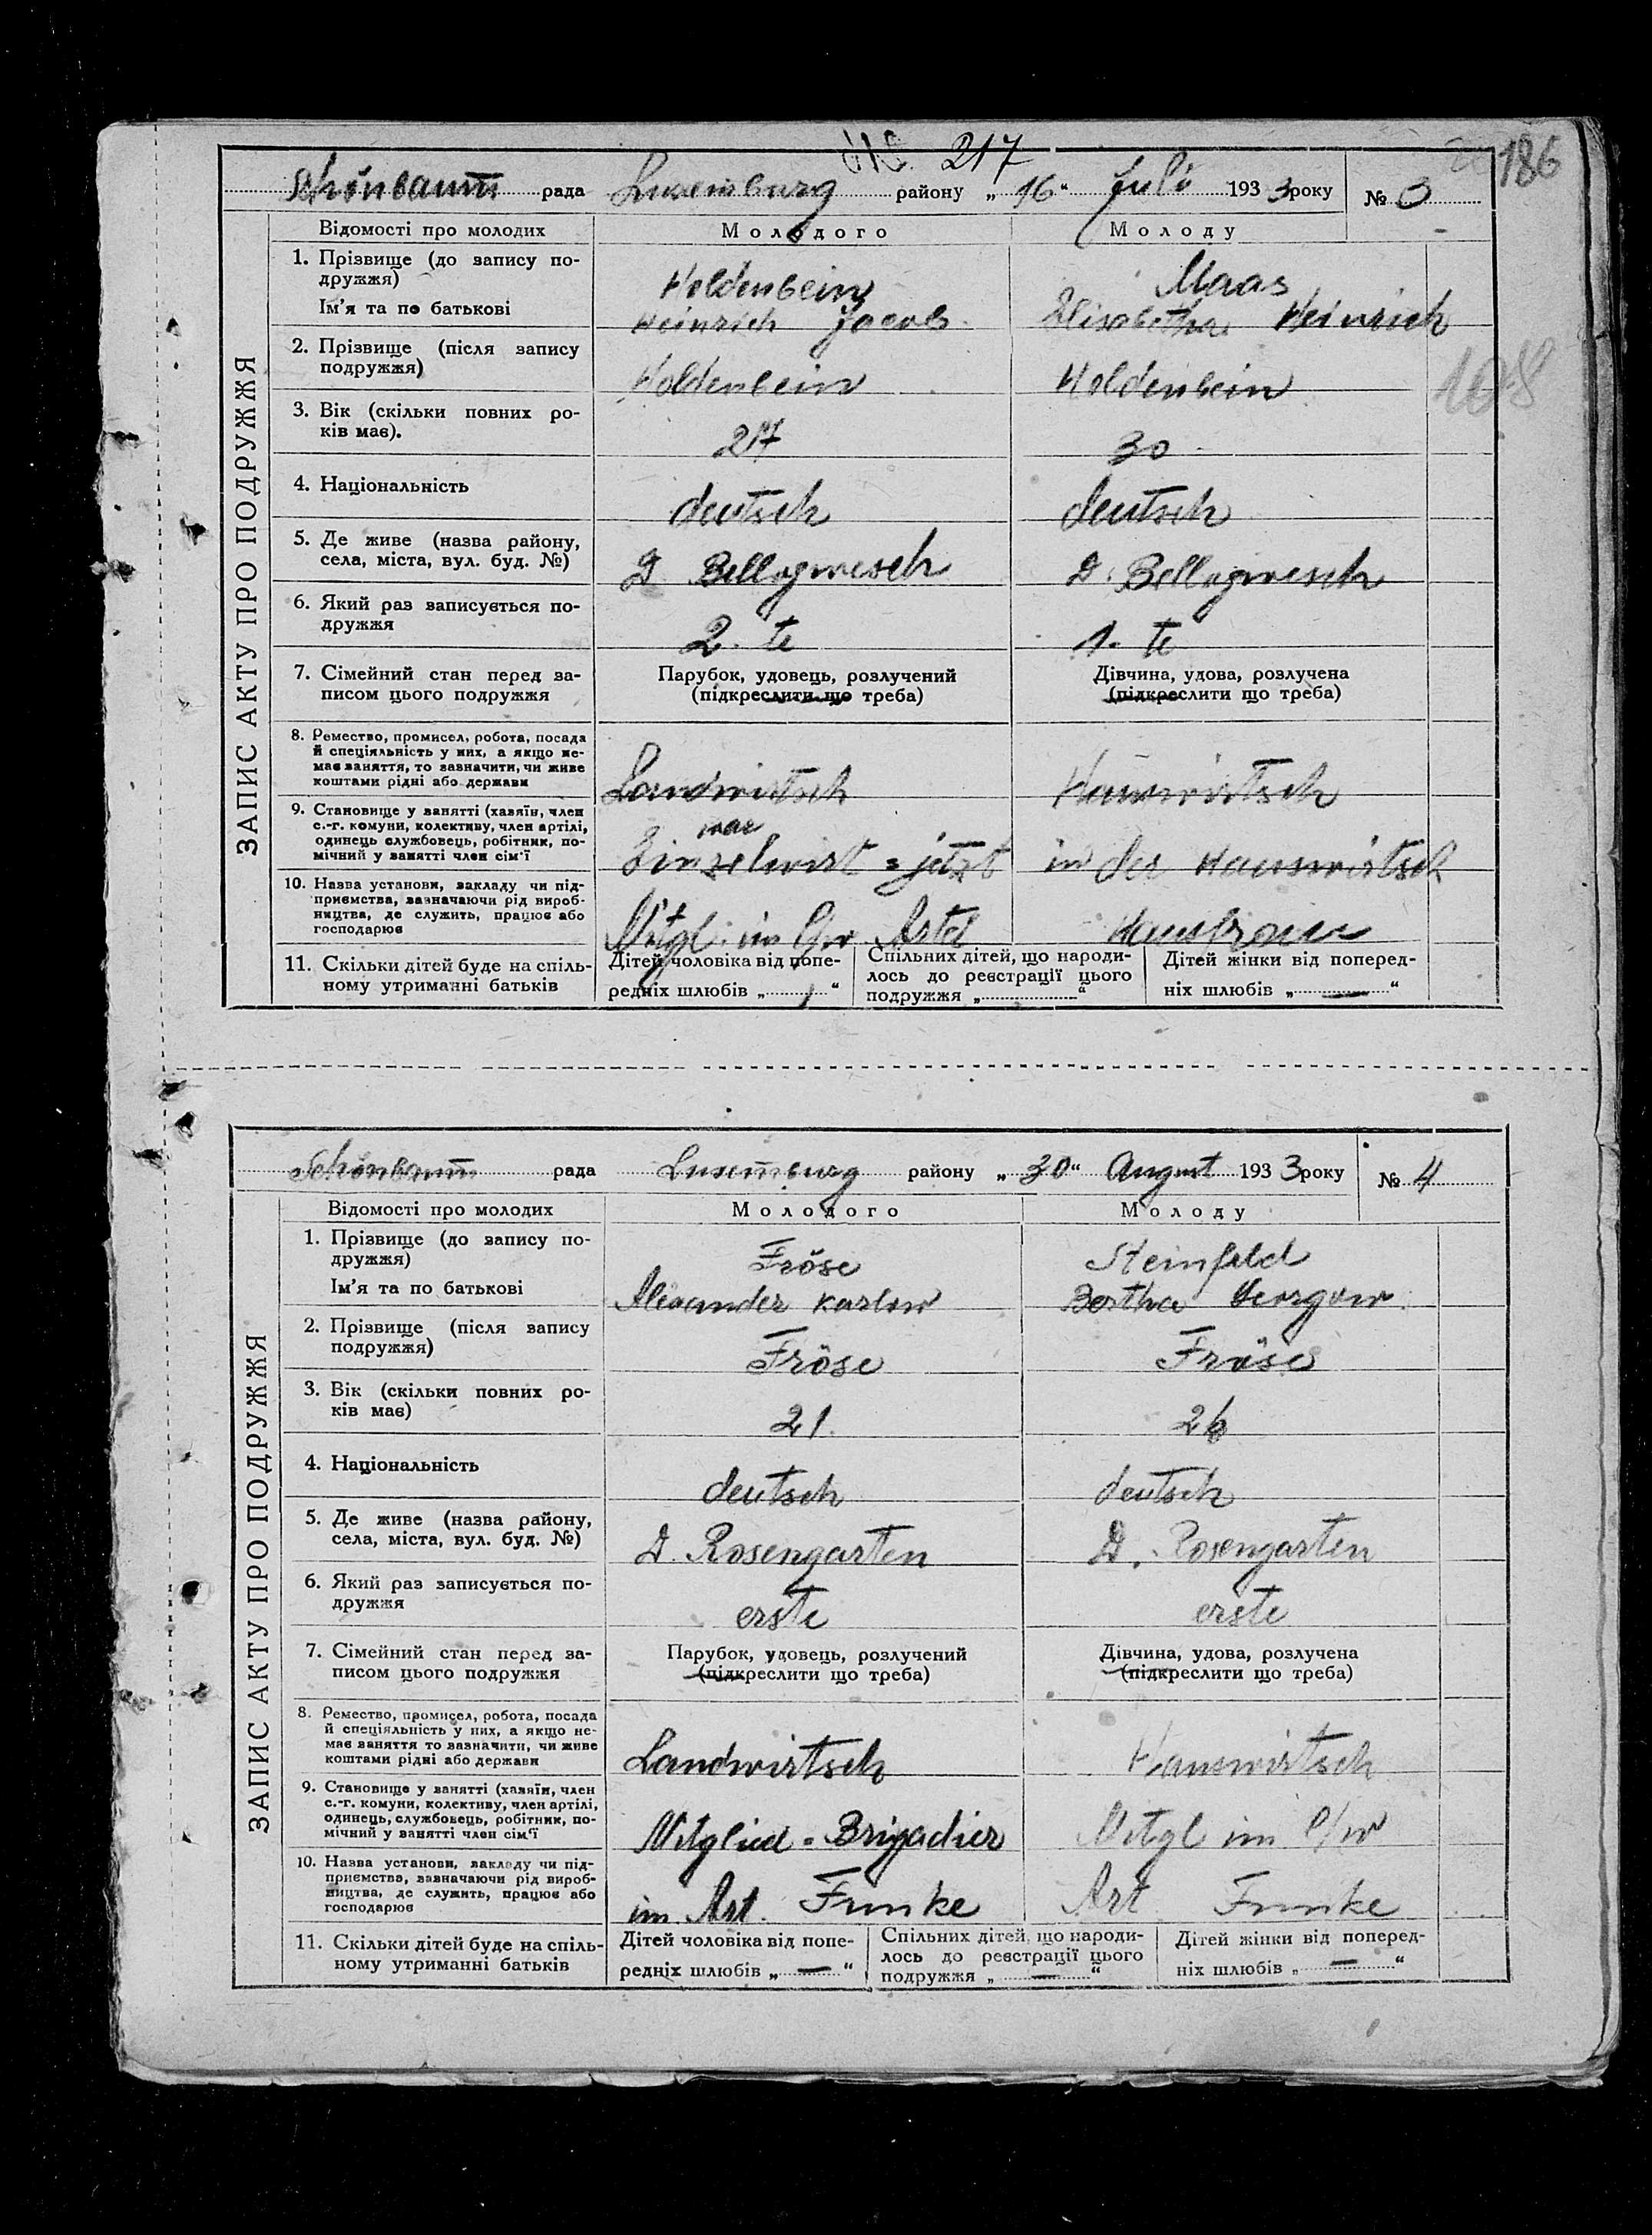 217
186
Schönbaum рада Luxemburg району „16“ Juli 1933 року № 3
ЗАПИС АКТУ ПРО ПОДРУЖЖЯ
Відомості про молодих Молодого Молоду
1. Прізвище (до запису по-
дружжя) Holdenbein Maas
Ім'я та по батькові Heinrich Jacob Elisabetha Heinrich
2. Прізвище (після запису
подружжя) Holdenbein Holdenbein
108
3. Вік (скільки повних ро-
ків має). 27 30
4. Національність deutsch deutsch
5. Де живе (назва району,
села, міста, вул. буд. №) D. Bellagwesch D. Bellagwesch
6. Який раз записується по-
дружжя 2. te 1. te
7. Сімейний стан перед за- Парубок, удовець, розлучений Дівчина, удова, розлучена
писом цього подружжя (підкреслити що треба) (підкреслити що треба)
8. Ремество, промисел, робота, посада
й спеціяльність у них, а якщо не-
має заняття, то зазначити, чи живе
коштами рідні або держави Landwirtsch Hauswirtsch
9. Становище у занятті (хазяїн, член
с.-г. комуни, колективу, член артілі,
war
одинець службовець, робітник, по-
мічний у занятті член сім'ї Einzelwirt = jetzt in der Hauswirtsch
10. Назва установи, закладу чи під-
приємства, зазначаючи рід вироб-
ництва, де служить, працює або
господарює Mitgl. im Artel Hausfrau
11. Скільки дітей буде на спіль- Дітей чоловіка від попе- Спільних дітей, що народи- Дітей жінки від поперед-
ному утриманні батьків редніх шлюбів „ “ лось до реєстрації цього ніх шлюбів „ — “
подружжя „ “
Schönbaum рада Luxemburg району „30“ August 1933 року № 4
ЗАПИС АКТУ ПРО ПОДРУЖЖЯ
Відомості про молодих Молодого Молоду
1. Прізвище (до запису по-
дружжя) Fröse Steinfeld
Ім'я та по батькові Alexander Karlow Bertha Georgow.
2. Прізвище (після запису
подружжя) Fröse Fröse
3. Вік (скільки повних ро-
ків має) 21.
4. Національність deutsch deutsch
5. Де живе (назва району,
села, міста, вул. буд. №) D. Rosengarten D. Rosengarten
6. Який раз записується по-
дружжя erste erste
7. Сімейний стан перед за- Парубок, удовець, розлучений Дівчина, удова, розлучена
писом цього подружжя (підкреслити що треба) (підкреслити що треба)
8. Ремество, промисел, робота, посада
й спеціяльність у них, а якщо не-
має заняття то зазначити, чи живе
коштами рідні або держави Landwirtsch Hauswirtsch
9. Становище у занятті (хазяїн, член
с.-г. комуни, колективу, член артілі,
одинець, службовець, робітник, по-
мічний у занятті член сім'ї Mitglied = Brigadier Mitgl im
10. Назва установи, закладу чи під-
приємства, зазначаючи рід вироб-
ництва, де служить, працює або
господарює im Art. Funke Art Funke
11. Скільки дітей буде на спіль- Дітей чоловіка від попе- Спільних дітей, що народи- Дітей жінки від поперед-
ному утриманні батьків редніх шлюбів „ — “ лось до реєстрації цього ніх шлюбів „ — “
подружжя „ — “